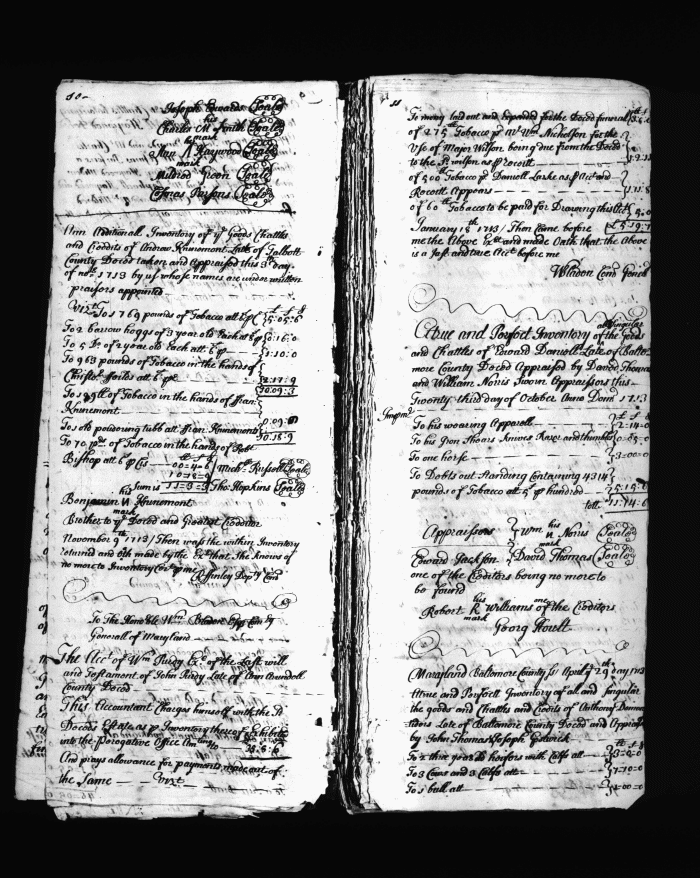 10
Joseph Edwards Seale
his
Charles M Smith Seale
mark
her
Ann Haywood Seale
mark
Mildred Green Seale
Thomas Parsons Seale
Ann Additionall Inventory of ye Goods Chattles
and Credits of Andrew Kninemont Late of Talbott
County Deced taken and Appraised this day
of nobr 1713 by us whose names are under written
praisors appointed
To 1769 pounds of Tobacco att 5:05:6
To 2 barrow hoggs of 3 year old Each at 6 0:16:0
To 5 Do of 2 year old Each att 1:10:0
To 963 pounds of Tobacco in the hands of
att 6 2:17:9
10:09:3
To of Tobacco in the hands of
Kninemont
To 1 old poudering tubb att 0:09:0
10:18:9
To 70 pds of Tobacco in the hands of Robt
Bishop att 6 is 00=4=6 Mich: Russell Seale
10:18=9
Sum is 11=3=3 Tho: Hopkins Seale
his
Benjamin Kninemont
mark
Brother to ye Deced and Greatest Creditor
November 9th 1713 / Then was the within Inventory
returned and oth made by the Exx that She knows of
no more to Inventory
To The Honble Wm Bladen Esqr
Generall of Maryland
The Acct of Wm Purdy Exr of the Last will
and Testament of John Purdy Late of Ann Arundell
County Deced
This Accountant Charges himself with the Sd
Deceds Estate as pr Inventory thereof Exhibitt
into the Perogative Office 28:6:6
And prays allowance for payments made out of
the Same Vizt
11
To mony laid out and expended for the Deced funerall
of 275 Tobacco pr Mr Wm Nicholson for the
Use of Major Wilson being due from the Deced
to the Sd wilson as pr receit
of 500 Tobacco pr Daniell Larke as pr Acct and
Receit Appears 1:11:8
of 60 Tobacco to be paid for Drawing this Acct
£5:19:7
January 18th 1713 / Then Came before
me the Above Exr and made Oath that the Above
is a Just and true Acct before me
WBladen Com Genll
A true and Perfect Inventory of all & Singular the Goods
and Chattles of Edward Daniell Late of Balte
more County Deced Appraised by David Thomas
and William Noris Sworn Appraisors this
Twenty third day of October Anno Domi 1713
Imprms
To his wearing Apparell 2:14:0
To his Pen Shears knives Razor and thimble 0:05:0
To one horse 3=00=0
To Debts out Standing Containing 4314
pounds of Tobacco att 5 pr hundred
tott. 11:14:6
Appraisors Wm his Noris Seale
mark
Edward Jackson David Thomas Seale
one of the Creditors being no more to
be found
his
Robert R Williams one of the Creditors
mark
Georg Hoult
Maryland Baltemore County Ss April ye 29 day 1713
A true and Perfect Inventory of all and Singular
the goods and Chattles and Credits of Anthony
Late of Baltemore County Deced and Apprais
by John Thomas & Joseph
To 2 three year old heifers with Calfe att 3=0=0
To 3 Cows and 3 Calfs att 7=10=0
To 1 bull att 1=00=0